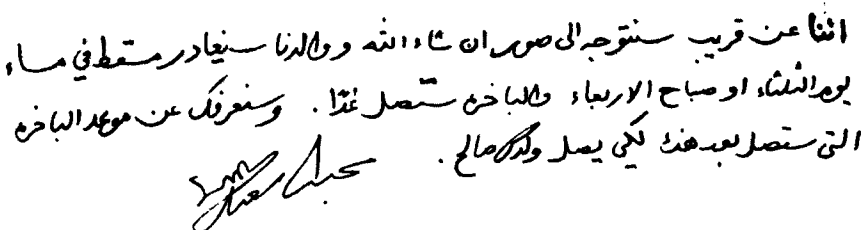 اننا عن قريب سنتوجه الى صور ان شاء الله ووالدنا سيغادر مسقط في مساء
يوم الثلثاء او صباح الاربعاء والباخره ستصل غدًا. وسنعرفك عن موعد الباخره
التي ستصل بعد هذه لكي يصل ولدك صالح.